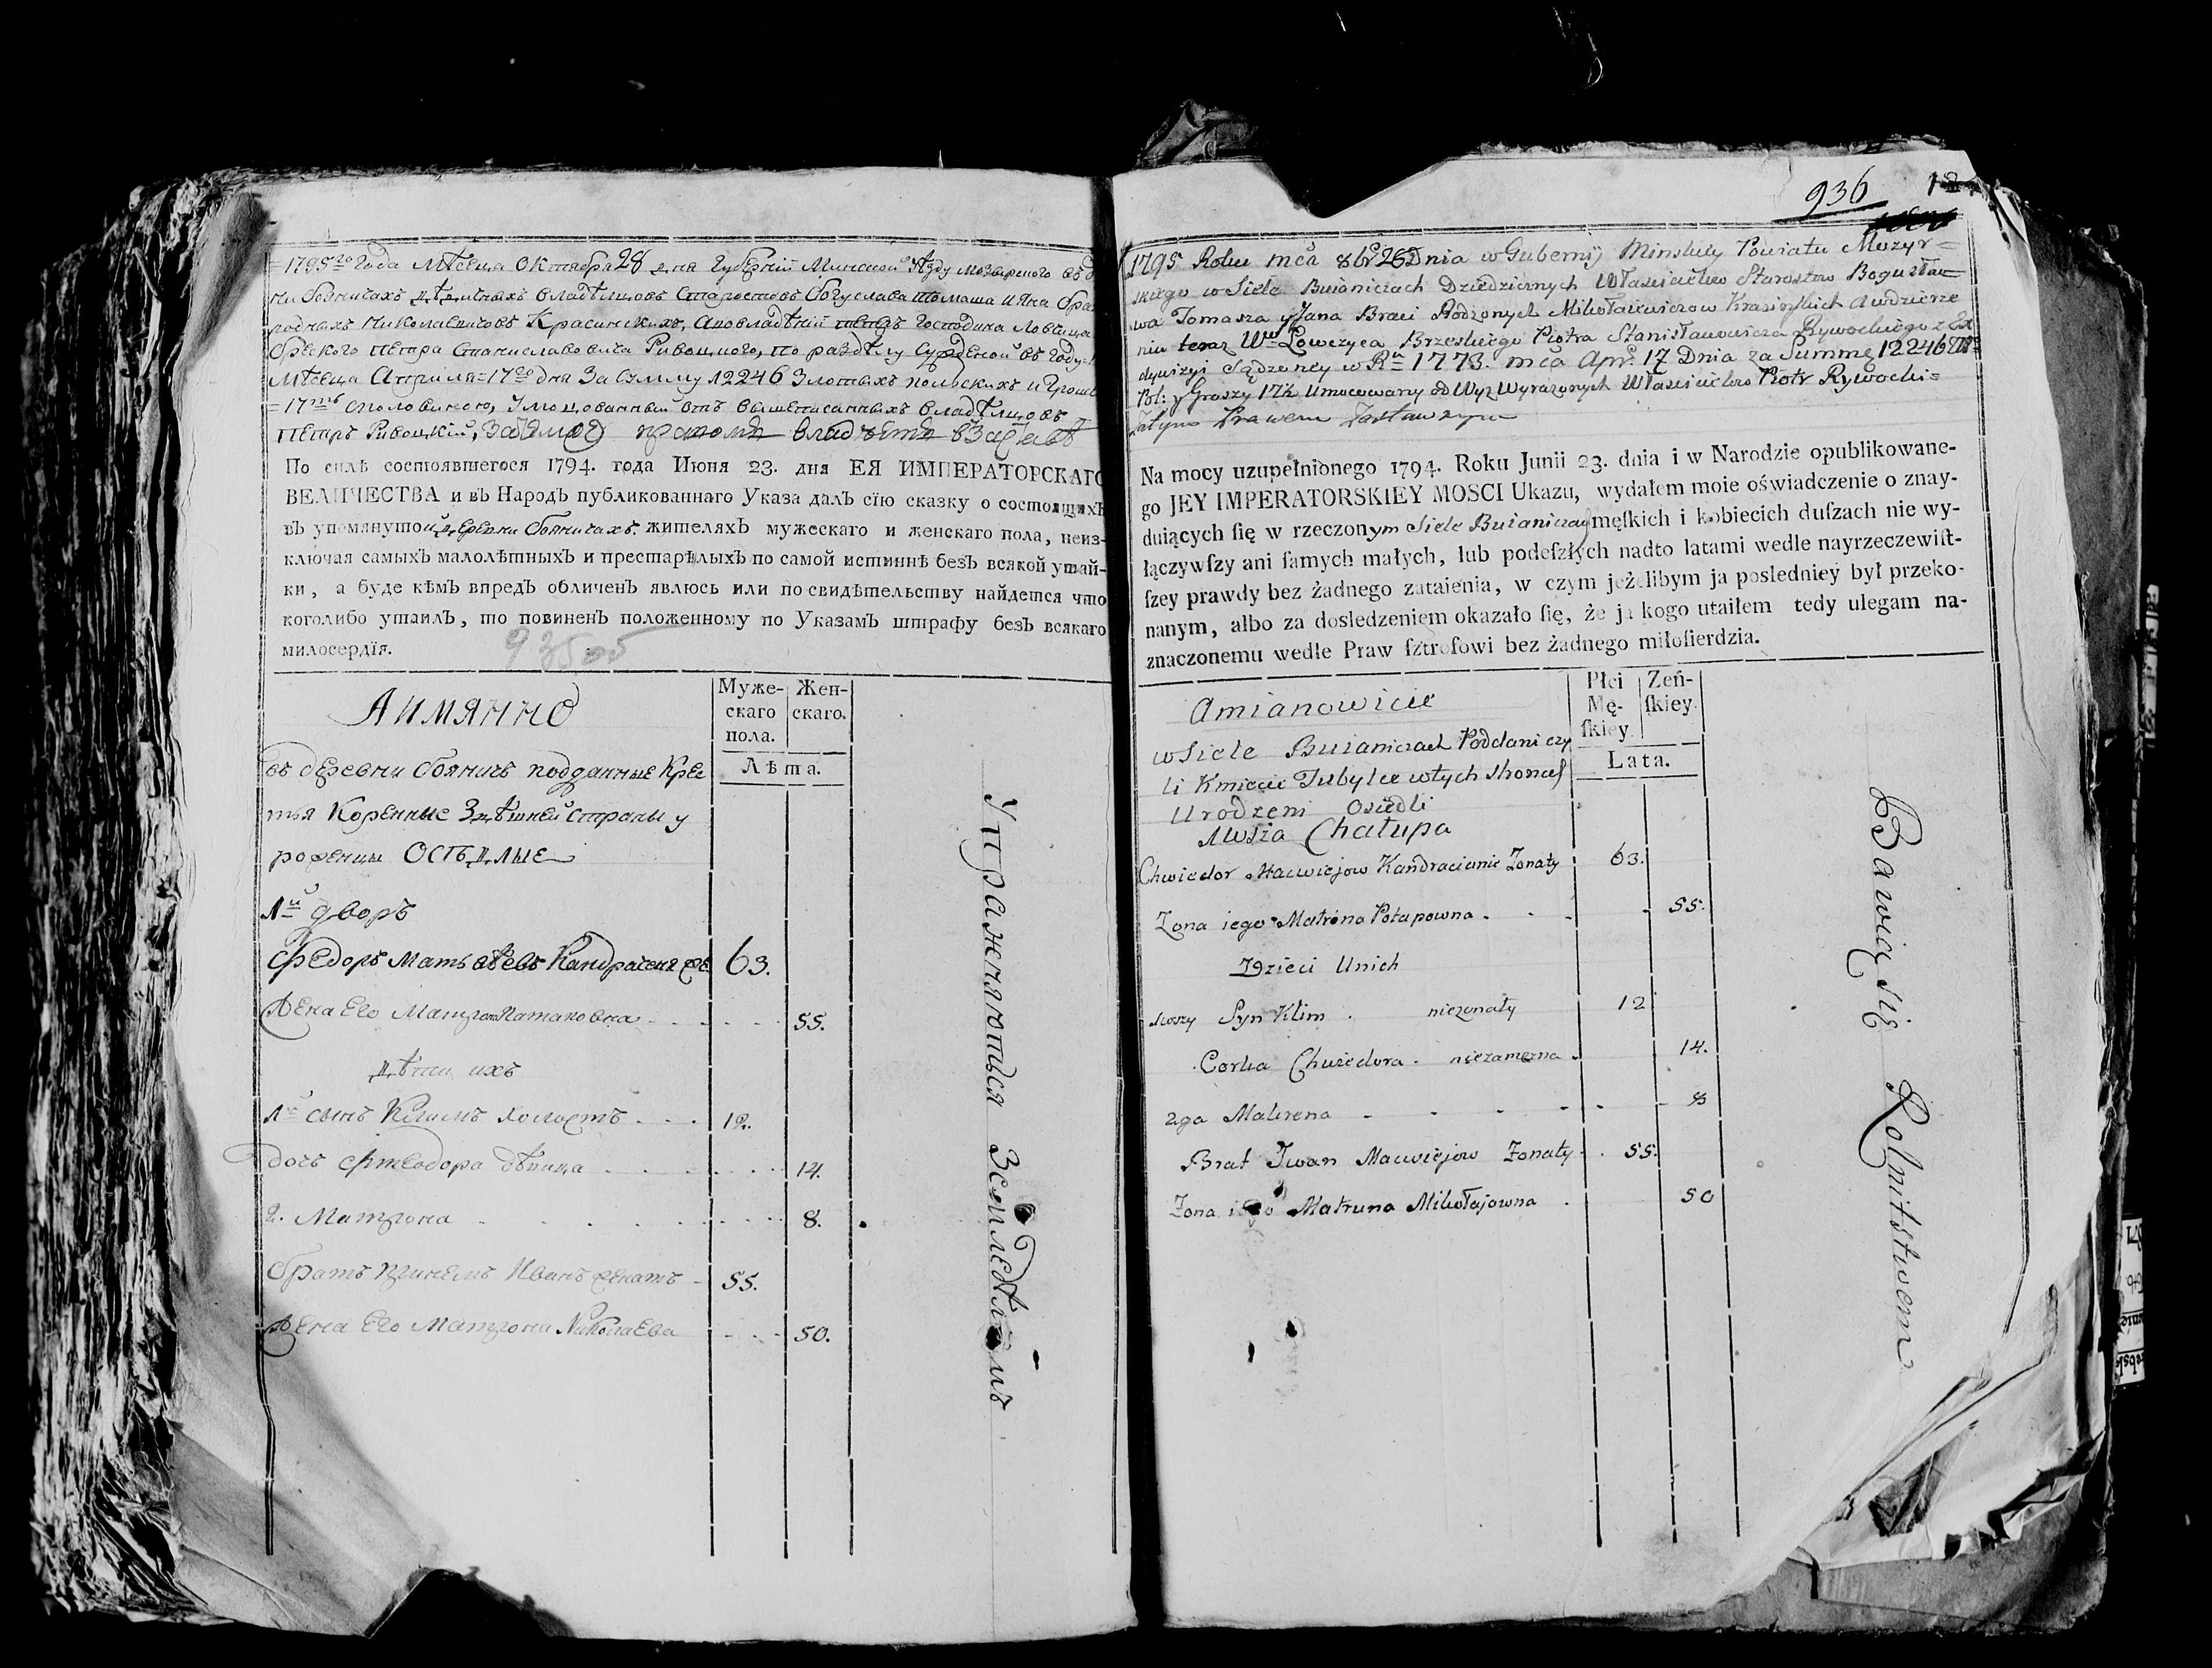 =1795го Года Мѣсеца Октября 28 дня Губерній Минской Уѣзду Мозырского въ
ни Бояничахъ дѣдичныхъ владѣлцовъ Старостовъ Богуслава Томаша и Яна Бра
родныхъ Николаевичовъ Красинскихъ, Господина Ловчаца
Бреского Петра Станиславовича Ривоцкого, по раздѣлу въ году
Мѣсеца Априля =17го дня За Сумму 12246 Злотыхъ польскихъ и Грош
=17 споловиною, Умоцованный отъ вышеписанныхъ владѣлцовъ
Петръ Ривоцкій,
По силѣ состоявшегося 1794. года Июня 23. дня ЕЯ ИМПЕРАТОРСКАГО
ВЕЛИЧЕСТВА и въ Народъ публикованнаго Указа далъ сїю сказку о состоящихъ
въ упомянутой деревни Боничахъ. жителяхъ мужескаго и женскаго пола, неиз-
ключая самыхъ малолѣтныхъ и престарѣлыхъ по самой истиннѣ безъ всякой утай-
ки, а буде кѣмъ впредъ обличенъ явлюсь или по свидѣтельству найдется что
коголибо утаилъ, то повиненъ положенному по Указамъ штрафу безъ всякаго
милосердїя.
Аимянно
Муже-
скаго
пола.
Жен-
скаго.
Лѣта.
въ деревни Бояничъ подданные Крес
тья Коренные Здѣшней Страны у
роженцы Осѣдлые
1й дворъ
Федоръ Матвѣевъ Кандраченя же. 63.
Жена Его Матрона Патаповна 55.
дѣти ихъ
1й сынъ Климъ Холостъ 12.
дочь Феодора дѣвица 14.
2. Матрона 8.
Братъ Иванъ женатъ 55.
Жена Его Матрона Николаева 50.
Упражняються Земледѣлїемъ
936
1795 Roku mca 8br 26 Dnia w Gubernij Minskiey Powiatu Mozyr=
skiego w Siele Buianiczach Dziedzicznych Właścicielow Starostow Bogusła=
wa Tomasza y Jana Braci Rodzonych Mikołaiewiczow Krasinskich
niu teraz Wgo Łowczyca Brzeskiego Piotra Stanisławowicza Rywockiego z Ex
dywizyi Sądzoney w Ru 1773. mca Apr. 17 Dnia za Summę 12246
Pol: y Groszy 17½ Umocowany od Wyż Wyrażonych Właścicielow Piotr Rywocki=
Prawem Zastawnym
Na mocy uzupełnionego 1794. Roku Junii 23. dnia i w Narodzie opublikowane-
go JEY IMPERATORSKIEY MOSCI Ukazu, wydałem moie oświadczenie o znay-
duiących ſię w rzeczonym Siele Buianiczach męſkich i kobiecich duſzach nie wy-
łączywſzy ani ſamych małych, lub podeſzłych nadto latami wedle nayrzeczewiſt-
ſzey prawdy bez żadnego zataienia, w czym jeżelibym ja posledniey był przeko-
nanym, albo za dosledzeniem okazało ſię, że ja kogo utaiłem tedy ulegam na-
znaczonemu wedle Praw ſztrofowi bez żadnego miłoſierdzia.
Amianowicie
Płci
Mę-
ſkiey
Zeń-
ſkiey.
Lata.
w Siele Buianiczach Poddani czy
li Kmiecie Tubylce w tych stronach
Urodzeni Osiedli
1wsza Chałupa
Chwiedor Maciejow Kandracienie Zonaty 63.
Zona iego Matrona Potapowna 55.
Dzieci Unich
1wszy Syn Klim niezonaty 12
Corka Chwiedora niezamezna 14.
2ga Matrena 8
Brat Iwan Maciejow Zonaty 55.
Zona iego Matruna Mikołajowna 50
Bawią się Rolnitstwem